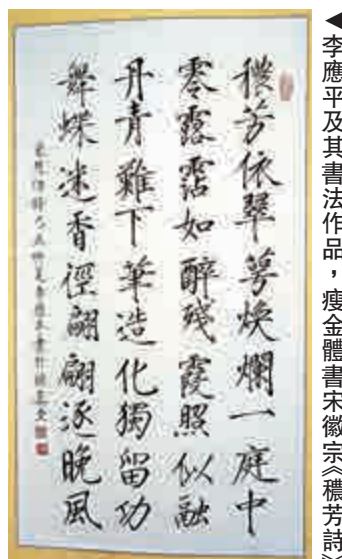 ◀李應平及其書法作品，瘦金體書宋徽宗《穠芳詩》
穠芳依翠萼煥爛一庭中
零露霑如醉殘霞照似融
丹青難下筆造化獨留功
舞蝶迷香徑翩翩逐晚風